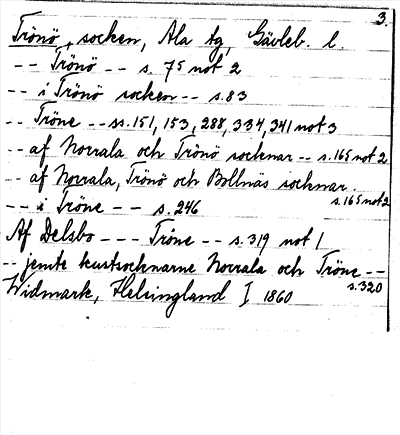 3.
Trönö, socken, Ala tg, Gävleb. l.
-- Trönö -- s. 75 not 2
-- i Trönö socken -- s. 83
-- Tröne -- ss. 151, 153, 288, 334, 341 not 3
-- af Norrala och Trönö socknar -- s. 165 not 2
-- af Norrala, Trönö och Bollnäs socknar. s. 165 not 2
-- i Tröne -- s. 246
Af Delsbo --- Tröne -- s. 319 not 1
-- jemte kustsocknarne Norrala och Tröne -- s. 320
Widmark, Helsingland I 1860